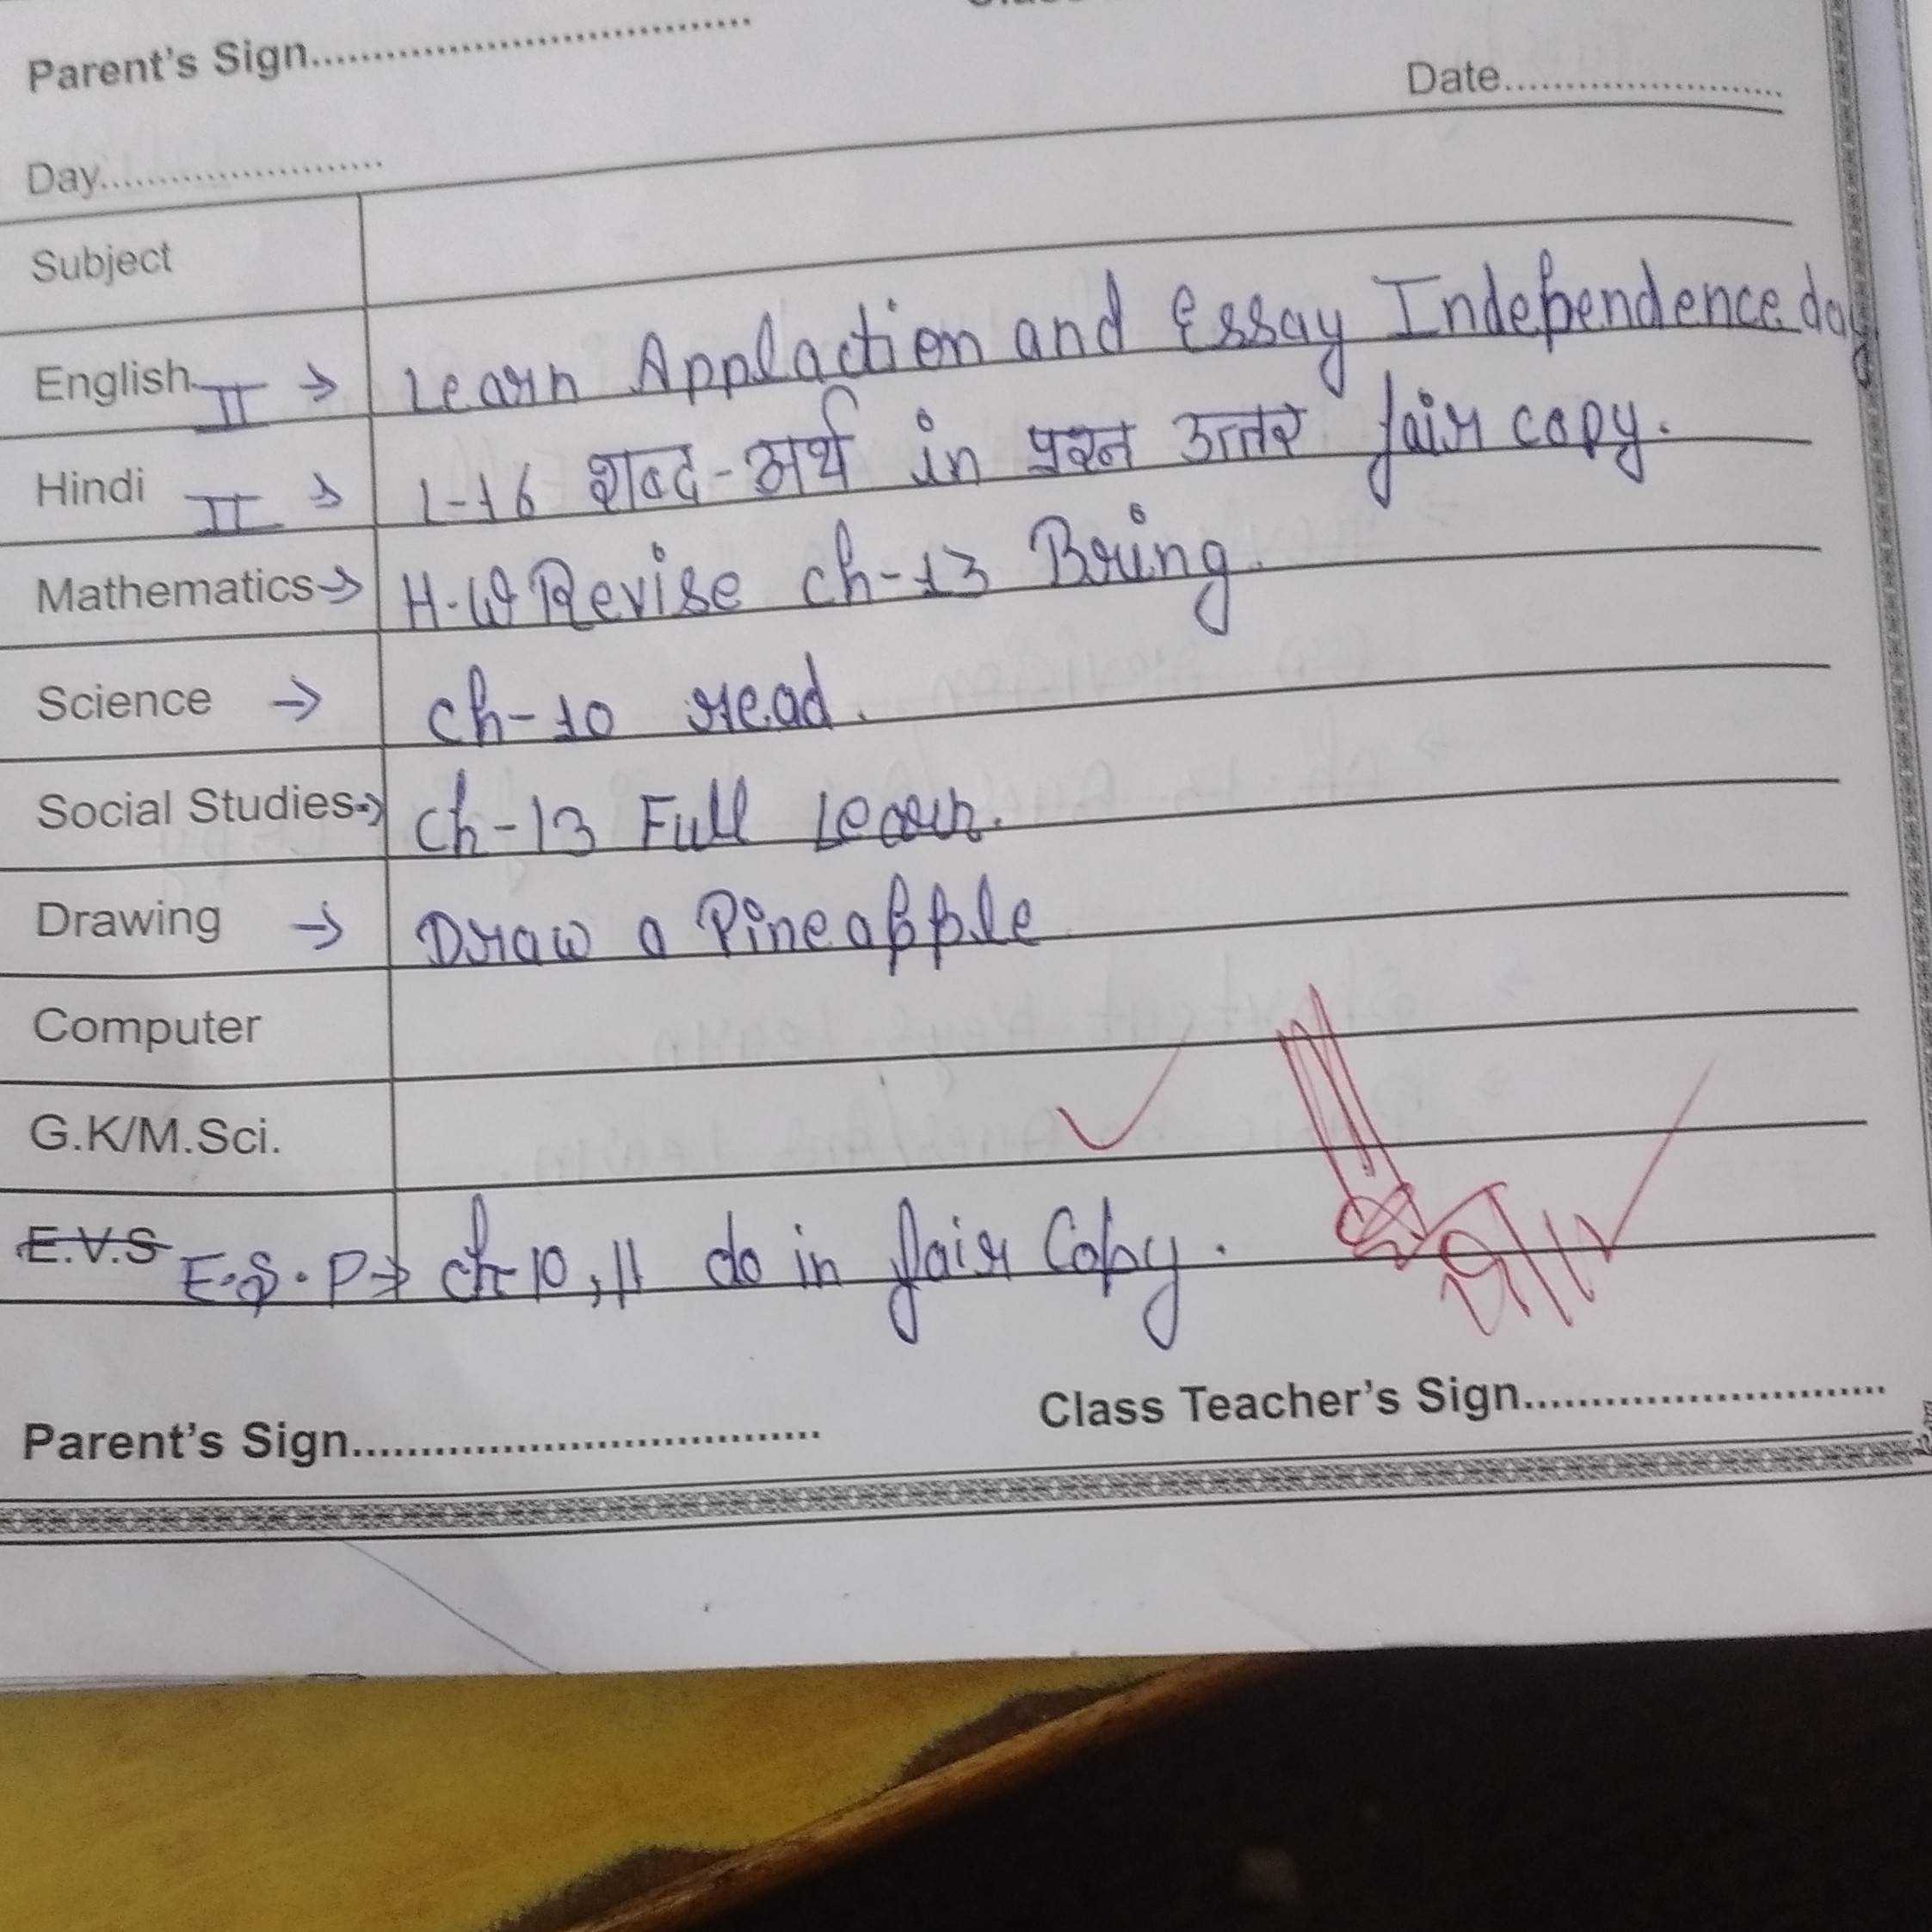 Parent's Sign
Date
Day
Subject
English II → Learn Applaction and Essay Independence day
Hindi II → 1-16 शब्द-अर्थ in प्रश्न उत्तर fair copy.
Mathematics → H.W Revise ch-13 Bring.
Science → ch-10 read.
Social Studies → ch-13 Full Learn.
Drawing → Draw a Pineapple
Computer
G.K/M.Sci.
E.V.S E.S.P → ch-10, 11 do in fair Copy.
Class Teacher's Sign
Parent's Sign